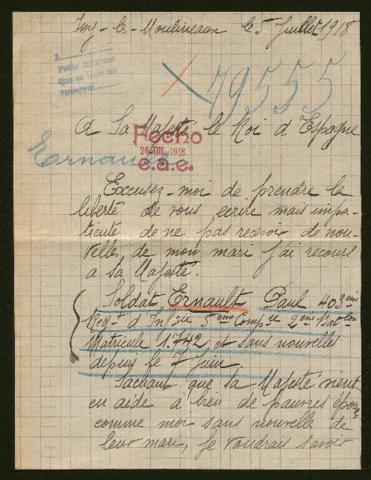 Issy-le-Moulineaux le 5 Juillet 1918
49555
A Sa Majesté le Roi d'Espagne
Fecho
26 JUL. 1918
e.a.e.
Ernault
Excusez-moi de prendre la
liberté de vous écrire mais impa-
tiente de ne pas recevoir de nou-
velle, de mon mari j'ai recours
a sa Majesté.
Soldat Ernault Paul 403ème
Regt d'Inf 5ème Compie 2ème Batlon
Matricule 1.742, et sans nouvelles
depuis le 7 Juin.
Sachant que sa Majesté vient
en aide à bien de pauvres épouses
comme moi sans nouvelle de
leur mari, je voudrais savoir